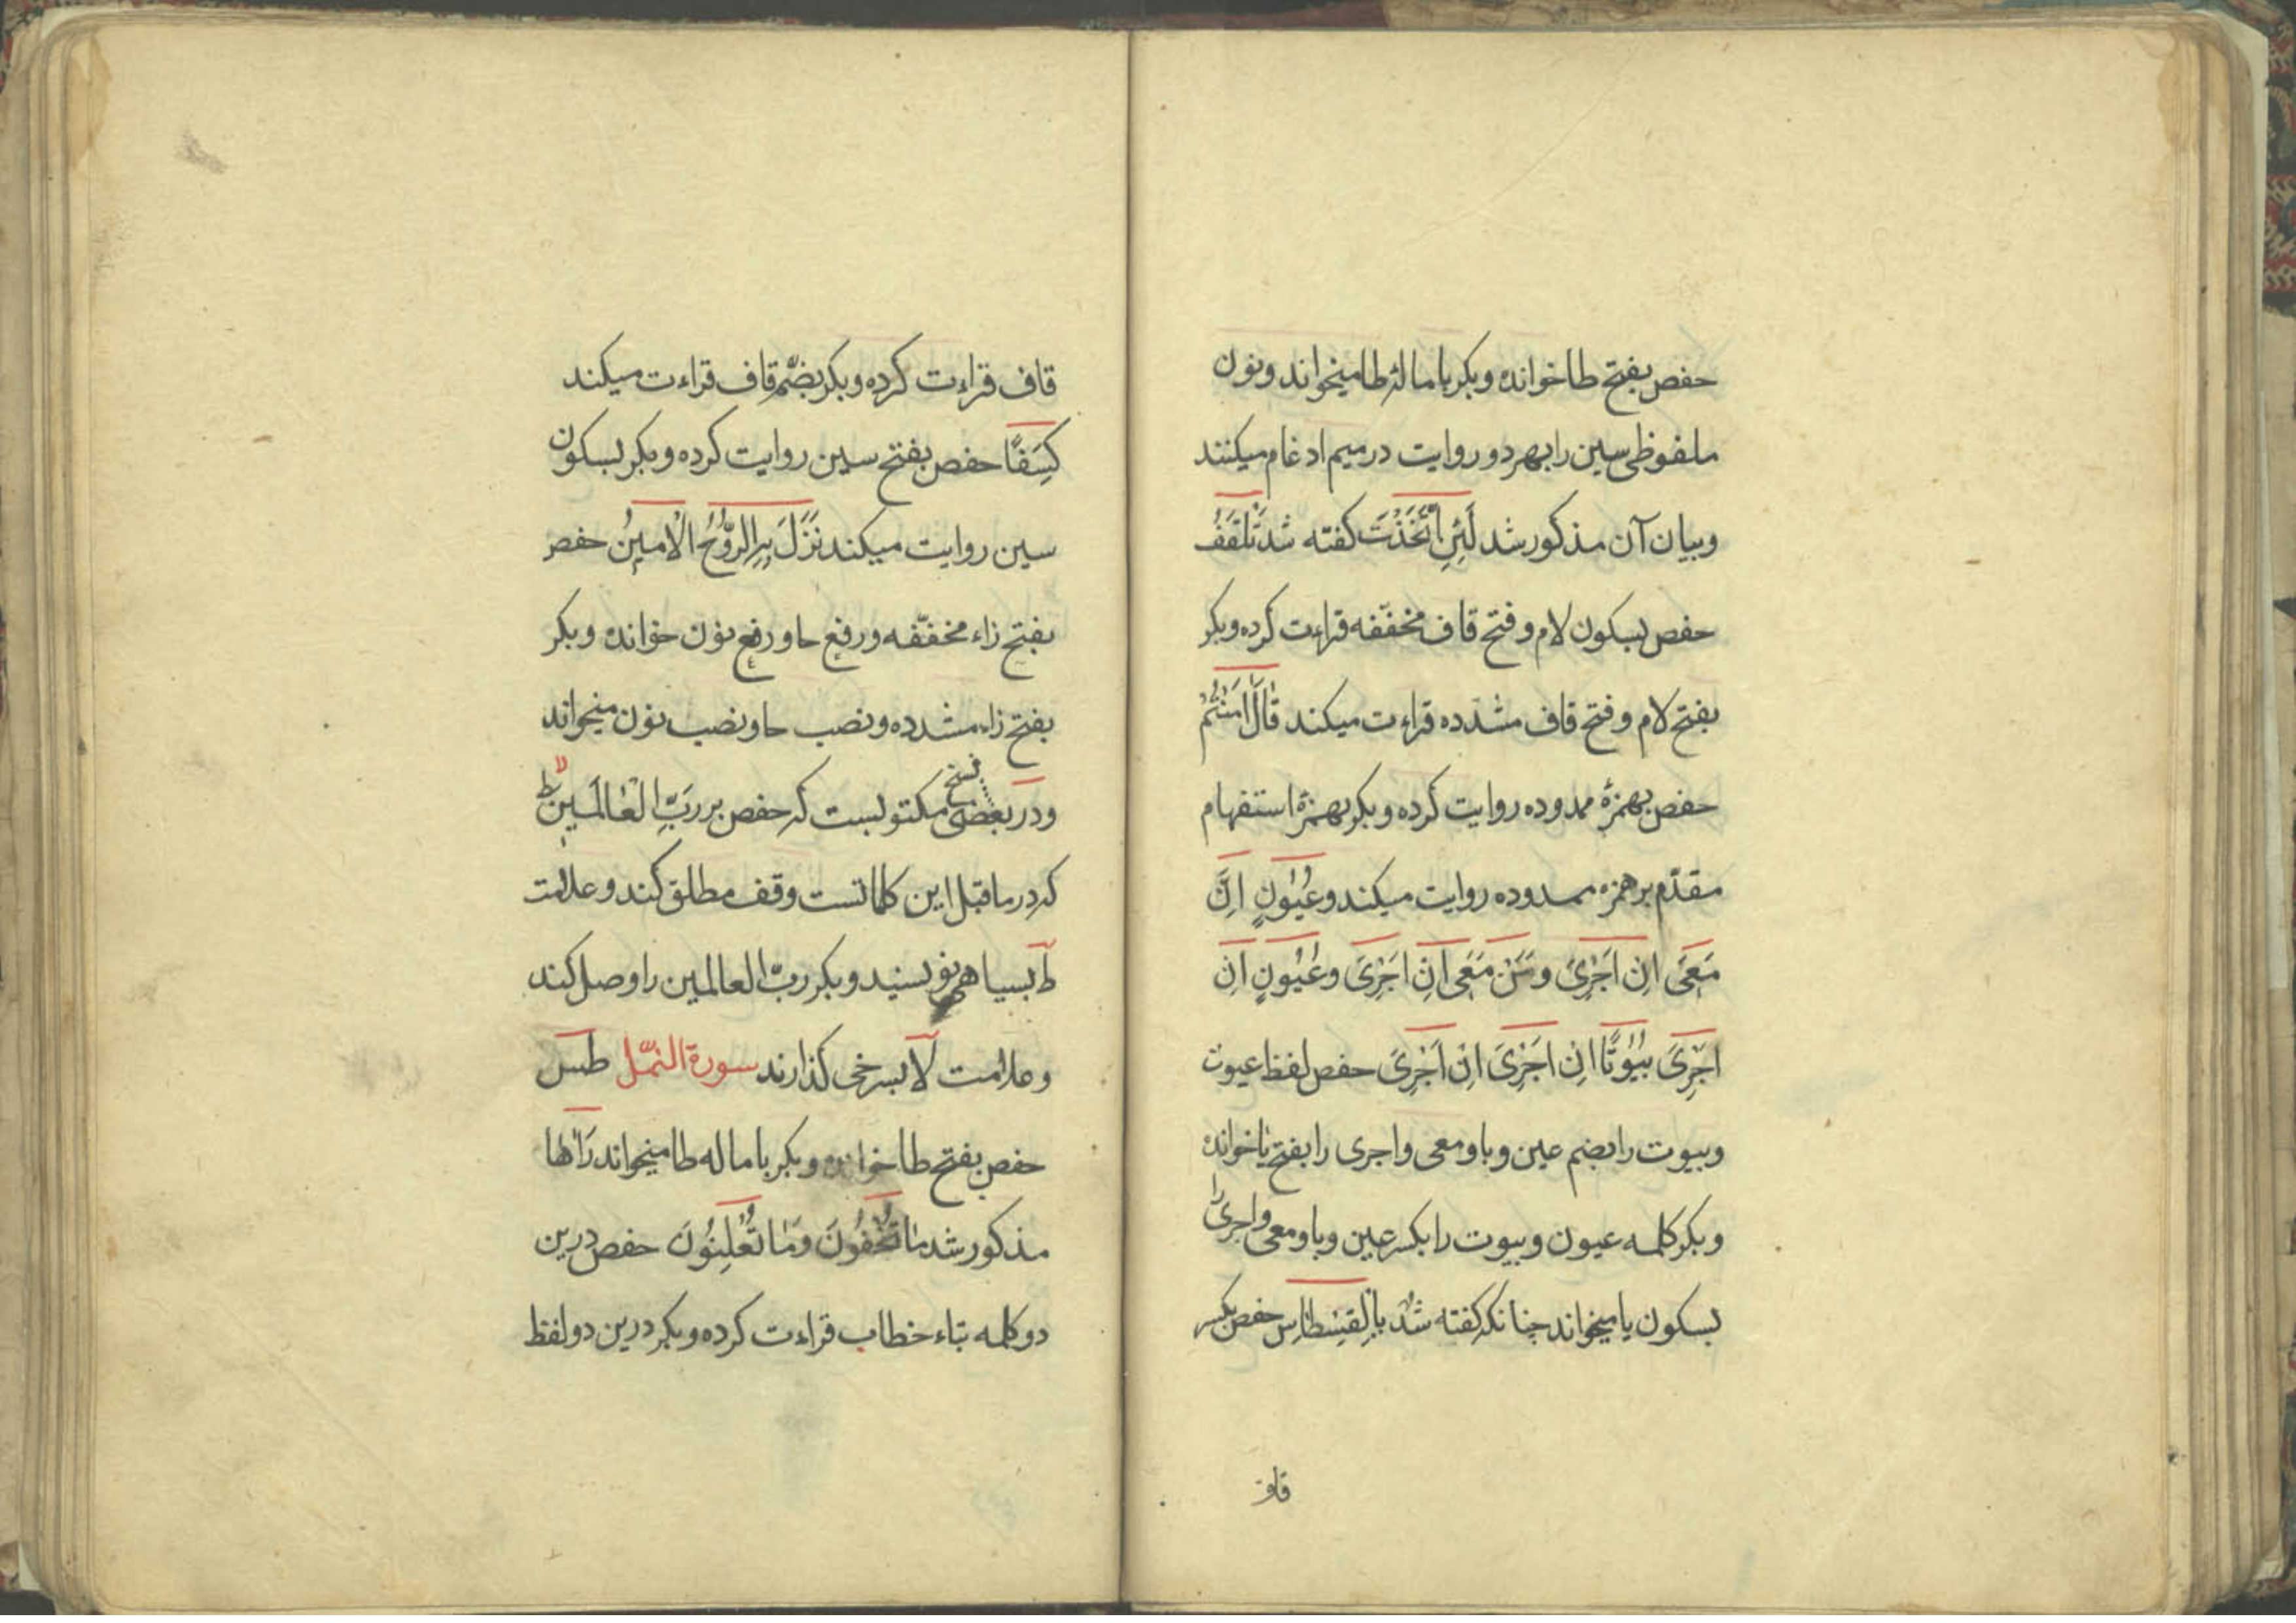 حفص بفتح طا خوانده وبكر باماله طا ميخواند ونون
ملفوظى سين را بهر دو روايت در ميم ادغام ميكنند
وبيان آن مذكور شد لَئِنِ اتَّخَذْتَ كفته شد تَلْقَفُ
حفص بسكون لام وفتح قاف مخففه قراءت كرده وبكر
بفتح لام وفتح قاف مشدده قراءت ميكند قَالَ اٰمَنْتُمْ
حفص بهمزۀ ممدوده روايت كرده وبكر بهمزۀ استفهام
مقدّم بر همزه ممدوده روايت ميكند وعُيُونٍ اِنَّ
مَعِىَ اِنْ اَجْرِىَ ومَنْ مَعِىَ اِنْ اَجْرِىَ وعُيُونٍ اِنْ
اَجْرِىَ بُيُوتًا اِنْ اَجْرِىَ اِنْ اَجْرِىَ حفص لفظ عيون
وبيوت را بضم عين وبا ومعى واجرى را بفتح يا خوانده
وبكر كلمه عيون وبيوت را بكسر عين وبا ومعى واجرى را
بسكون يا ميخواند چنانكه كفته شد بِالْقِسْطَاسِ حفص بكسر
قاف
قاف قراءت كرده وبكر بضمّ قاف قراءت ميكند
كِسَفًا حفص بفتح سين روايت كرده وبكر بسكون
سين روايت ميكند نَزَلَ بِهِ الرُّوحُ الْاَمِينُ حفص
بفتح زاء مخففّه ورفع حا ورفع نون خوانده وبكر
بفتح زاء مشدده ونصب حا ونصب نون ميخواند
ودر بعضى نسخ مكتوبست كه حفص بر رَبِّ الْعَالَمِينَ ط لا
كه در ماقبل اين كلماتست وقف مطلق كند وعلامت
ط بسياهى نويسند وبكر ربّ العالمين را وصل كند
وعلامت لا بسرخى كذارند سورة النمّل طس
حفص بفتح طا خوانده وبكر باماله طا ميخواند رَاٰهَا
مذكور شد مَا تُخْفُونَ وَمَا تُعْلِنُونَ حفص درين
دو كلمه بتاء خطاب قراءت كرده وبكر درين دو لفظ